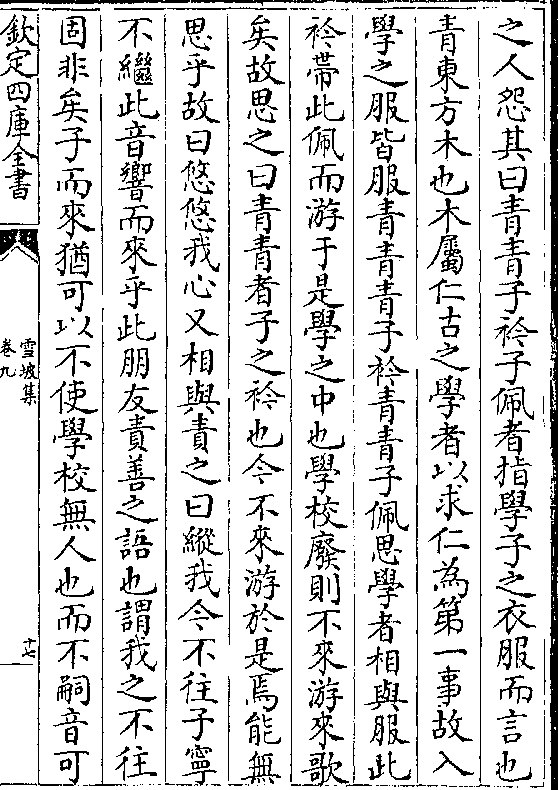 之人怨其曰青青子衿子佩者指學子之衣服而言也
青東方木也木屬仁古之學者以求仁為第一事故入
學之服皆服青青青子衿青青子佩思學者相與服此
衿帶此佩而游于是學之中也學校廢則不來游來歌
矣故思之曰青青者子之衿也今不來游於是焉能無
思乎故曰悠悠我心又相與責之曰縱我今不往子寧
不繼此音響而來乎此朋友責善之語也謂我之不往
固非矣子而來猶可以不使學校無人也而不嗣音可
欽定四庫全書
雪坡集
卷九
十七